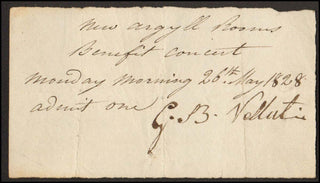 New Argyll Rooms
Benefit Concert
Monday Morning 26th May 1828
admit one
G. B. Velluti